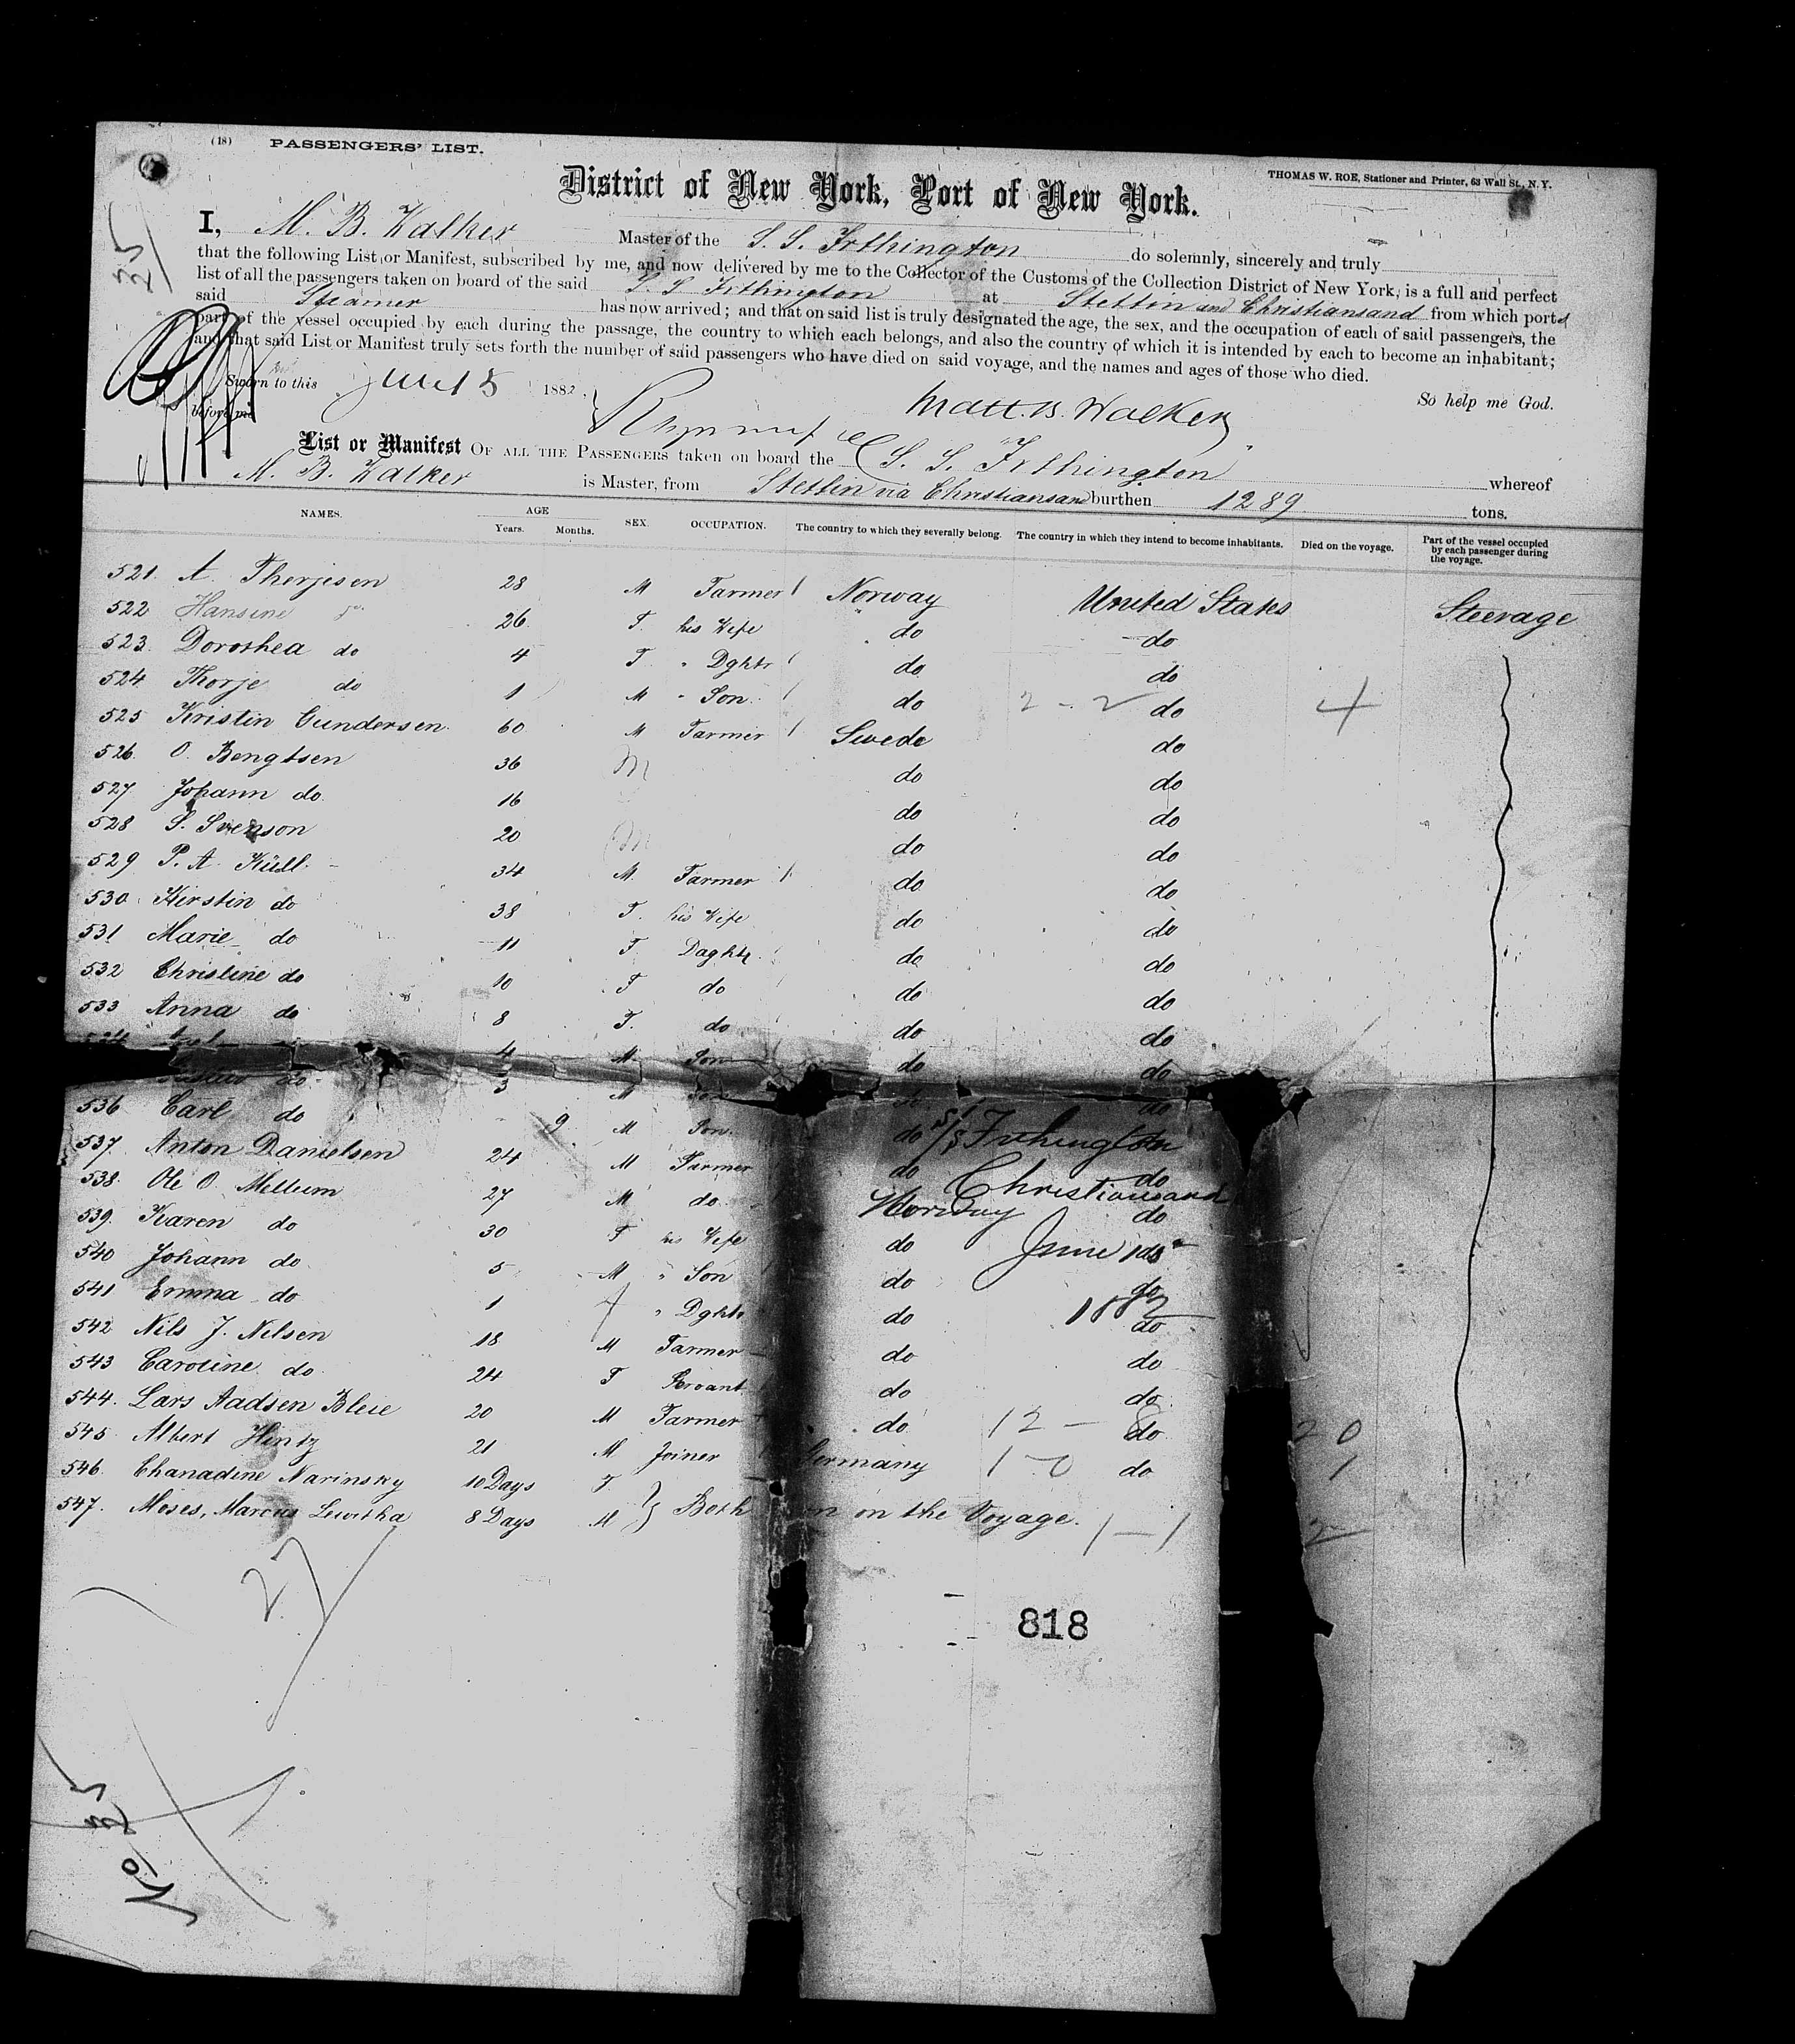 (18) PASSENGERS' LIST.
THOMAS W. ROE, Stationer and Printer, 63 Wall St., N. Y.
District of New York, Port of New York.
25
I, M. B. Walker Master of the S. S. Irthington do solemnly, sincerely and truly
that the following List or Manifest, subscribed by me, and now delivered by me to the Collector of the Customs of the Collection District of New York, is a full and perfect
list of all the passengers taken on board of the said S. S. Irthington at Stettin and Christiansand from which ports
said Steamer has now arrived; and that on said list is truly designated the age, the sex, and the occupation of each of said passengers, the
part of the vessel occupied by each during the passage, the country to which each belongs, and also the country of which it is intended by each to become an inhabitant;
and that said List or Manifest truly sets forth the number of said passengers who have died on said voyage, and the names and ages of those who died.
So help me God.
Sworn to this 1882,
before me
Matt. B. Walker
List or Manifest OF ALL THE PASSENGERS taken on board the S. S. Irthington whereof
M. B. Walker is Master, from Stettin via Christiansand burthen 1289 tons.
NAMES. AGE Years. Months. SEX. OCCUPATION. The country to which they severally belong. The country in which they intend to become inhabitants. Died on the voyage. Part of the vessel occupied by each passenger during the voyage.
521. A. Therjesen 28 M Farmer Norway United States Steerage
522 Hansine do 26 F. his Wife do do
523. Dorothea do 4 F. " Dghtr do do
524. Thorje do 1 M " Son do 2 - 2 do 4
525 Kristin Gundersen 60 M Farmer Swede do
526. O. Bengtsen 36 M do do
527 Johann do 16 do do
528 S. Svenson 20 M do do
529 P. A. Küll 34 M. Farmer do do
530 Kirstin do 38 F. his Wife do do
531 Marie do 11 F Daghtr. do do
532 Christine do 10 F do do do
533 Anna do 8 F. do do do
4 M. Son do do
do 3 M Son do do
536 Carl do 9 M Son do do
S/S Irthington
537. Anton Danielsen 24 M Farmer do do
Christiansand
538. Ole O. Mellum 27 M do Norway do
539. Karen do 30 F his Wife do do
June
540 Johann do 5 M " Son do do
1882
541 Emma do 1 f " Dghtr do do
542 Nils J. Nilsen 18 M Farmer do do
543 Caroline do 24 F Servant do do
544. Lars Aadsen Bleie 20 M Farmer do 12 - 8 do 20
545 Albert Hintz 21 M Joiner Germany 1 - 0 do 1
546. Chanadine Narinsky 10 Days F.
547. Moses, Marcus Lewitha 8 Days M } Both on the Voyage. 1 - 1 2
27
818
No 25